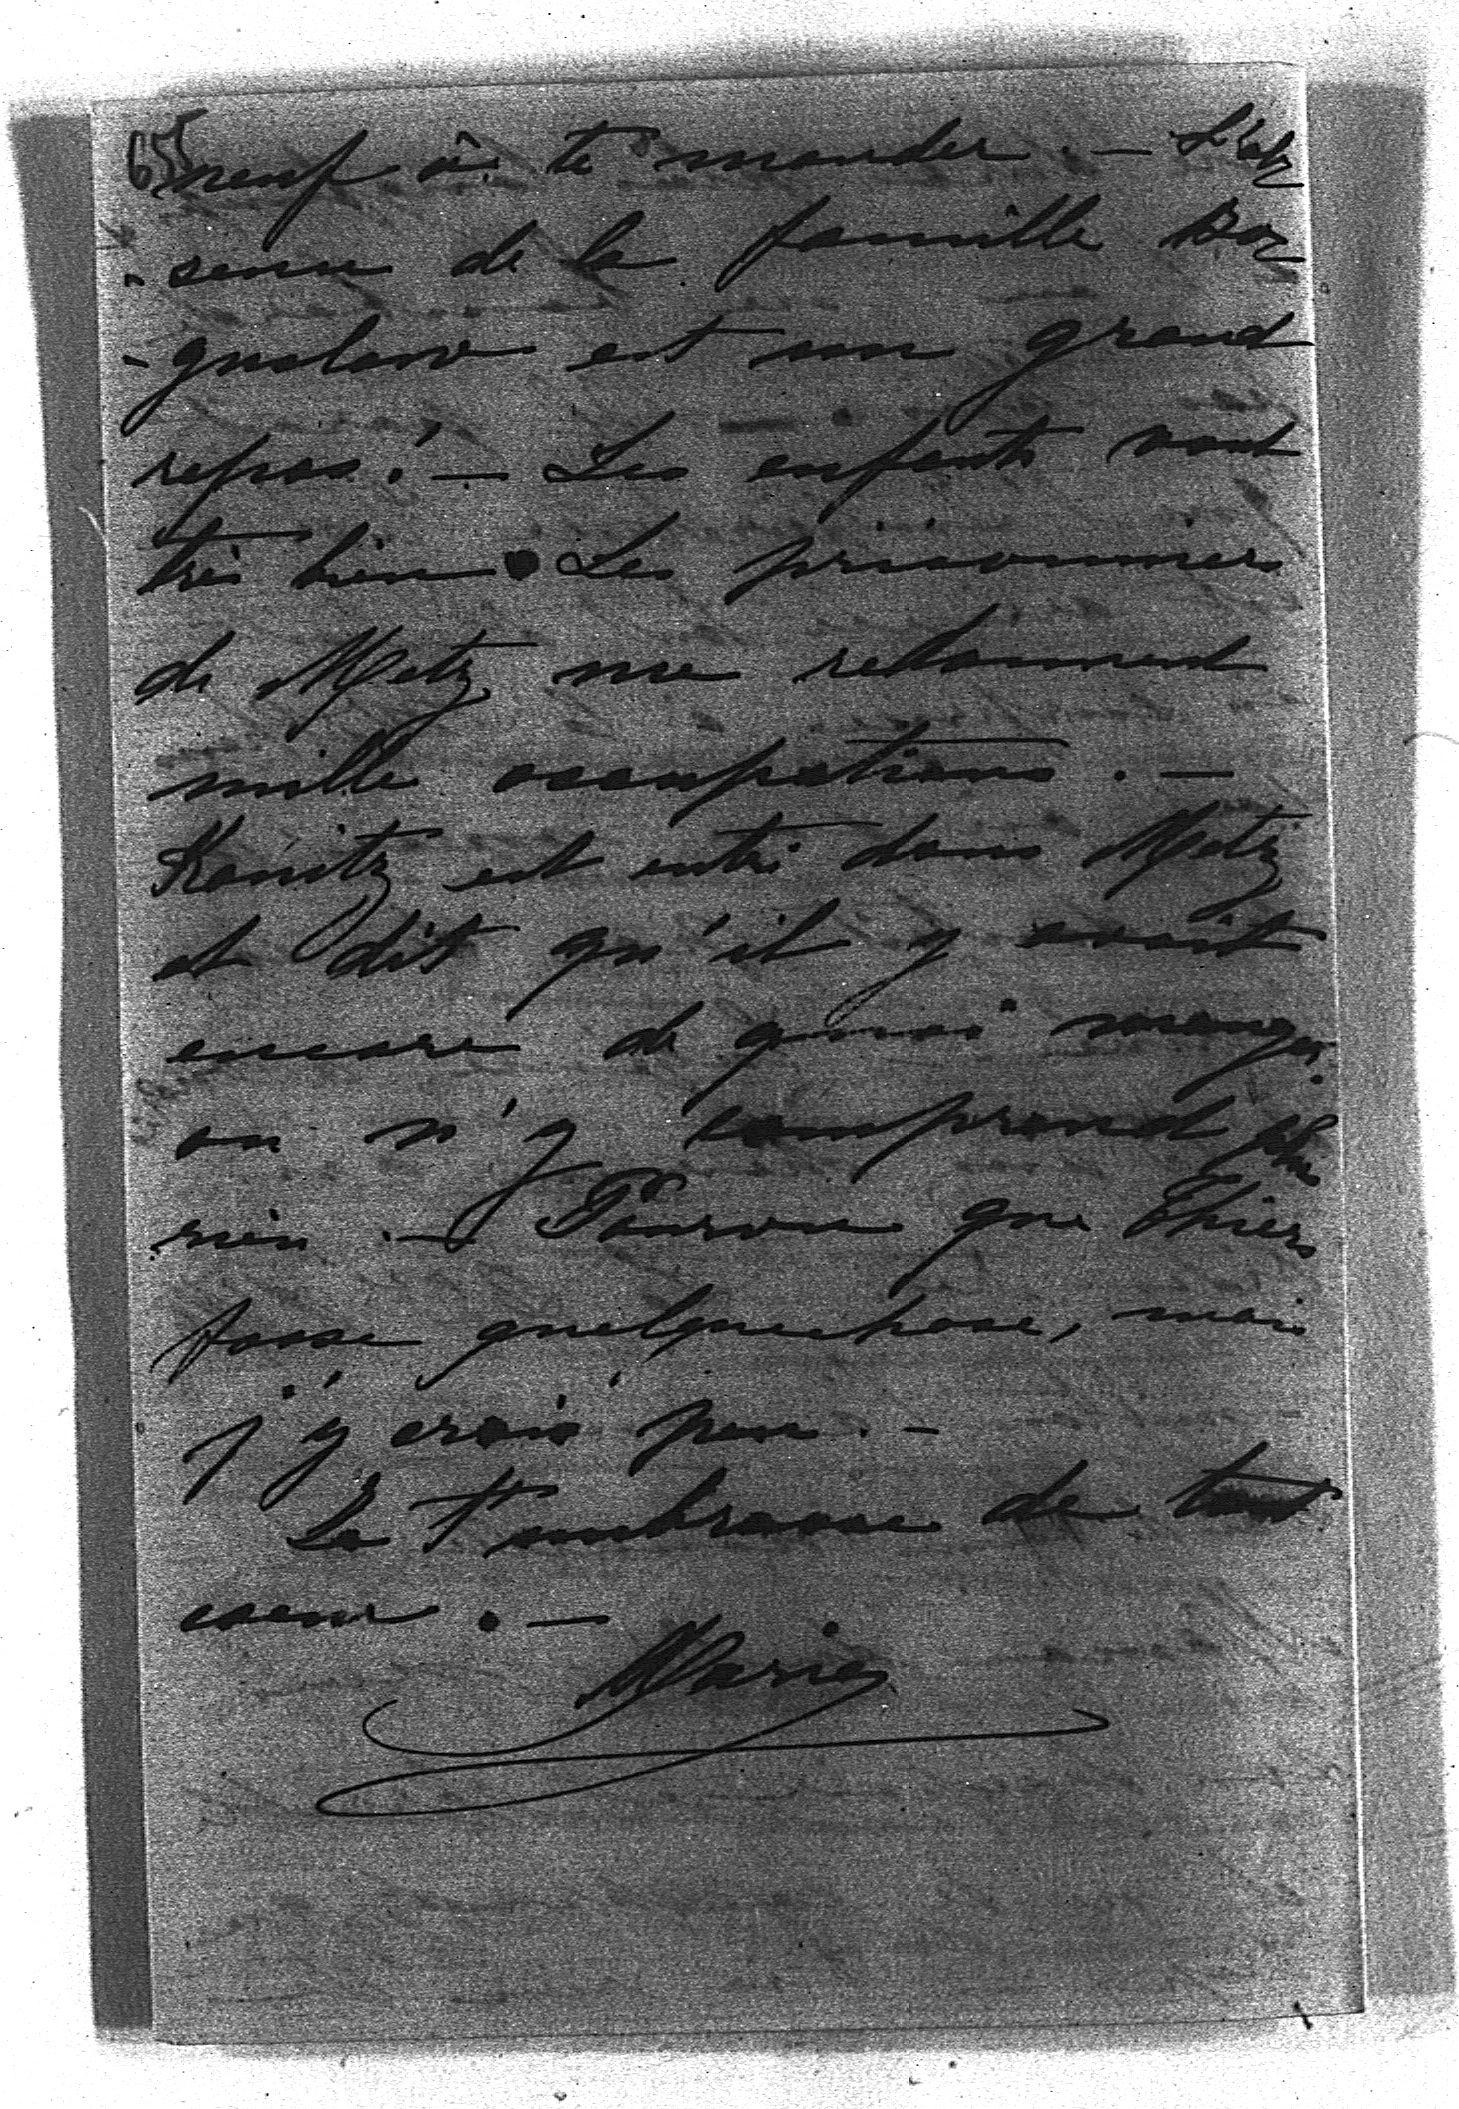 65
neuf à te mander. — L'ab
-sence de la famille Bo
-guslaw est un grand
repos! — Les enfants vont
très bien. Les prisonniers
de Metz me redonnent
mille occupations. —
Kanitz est entré dans Metz
et dit qu'il y avait
encore de quoi manger.
on n'y comprend plus
rien. — Pourvu que Thiers
fasse quelquechose, mais
j'y crois peu. —
Je t'embrasse de tout
coeur. —
Marie